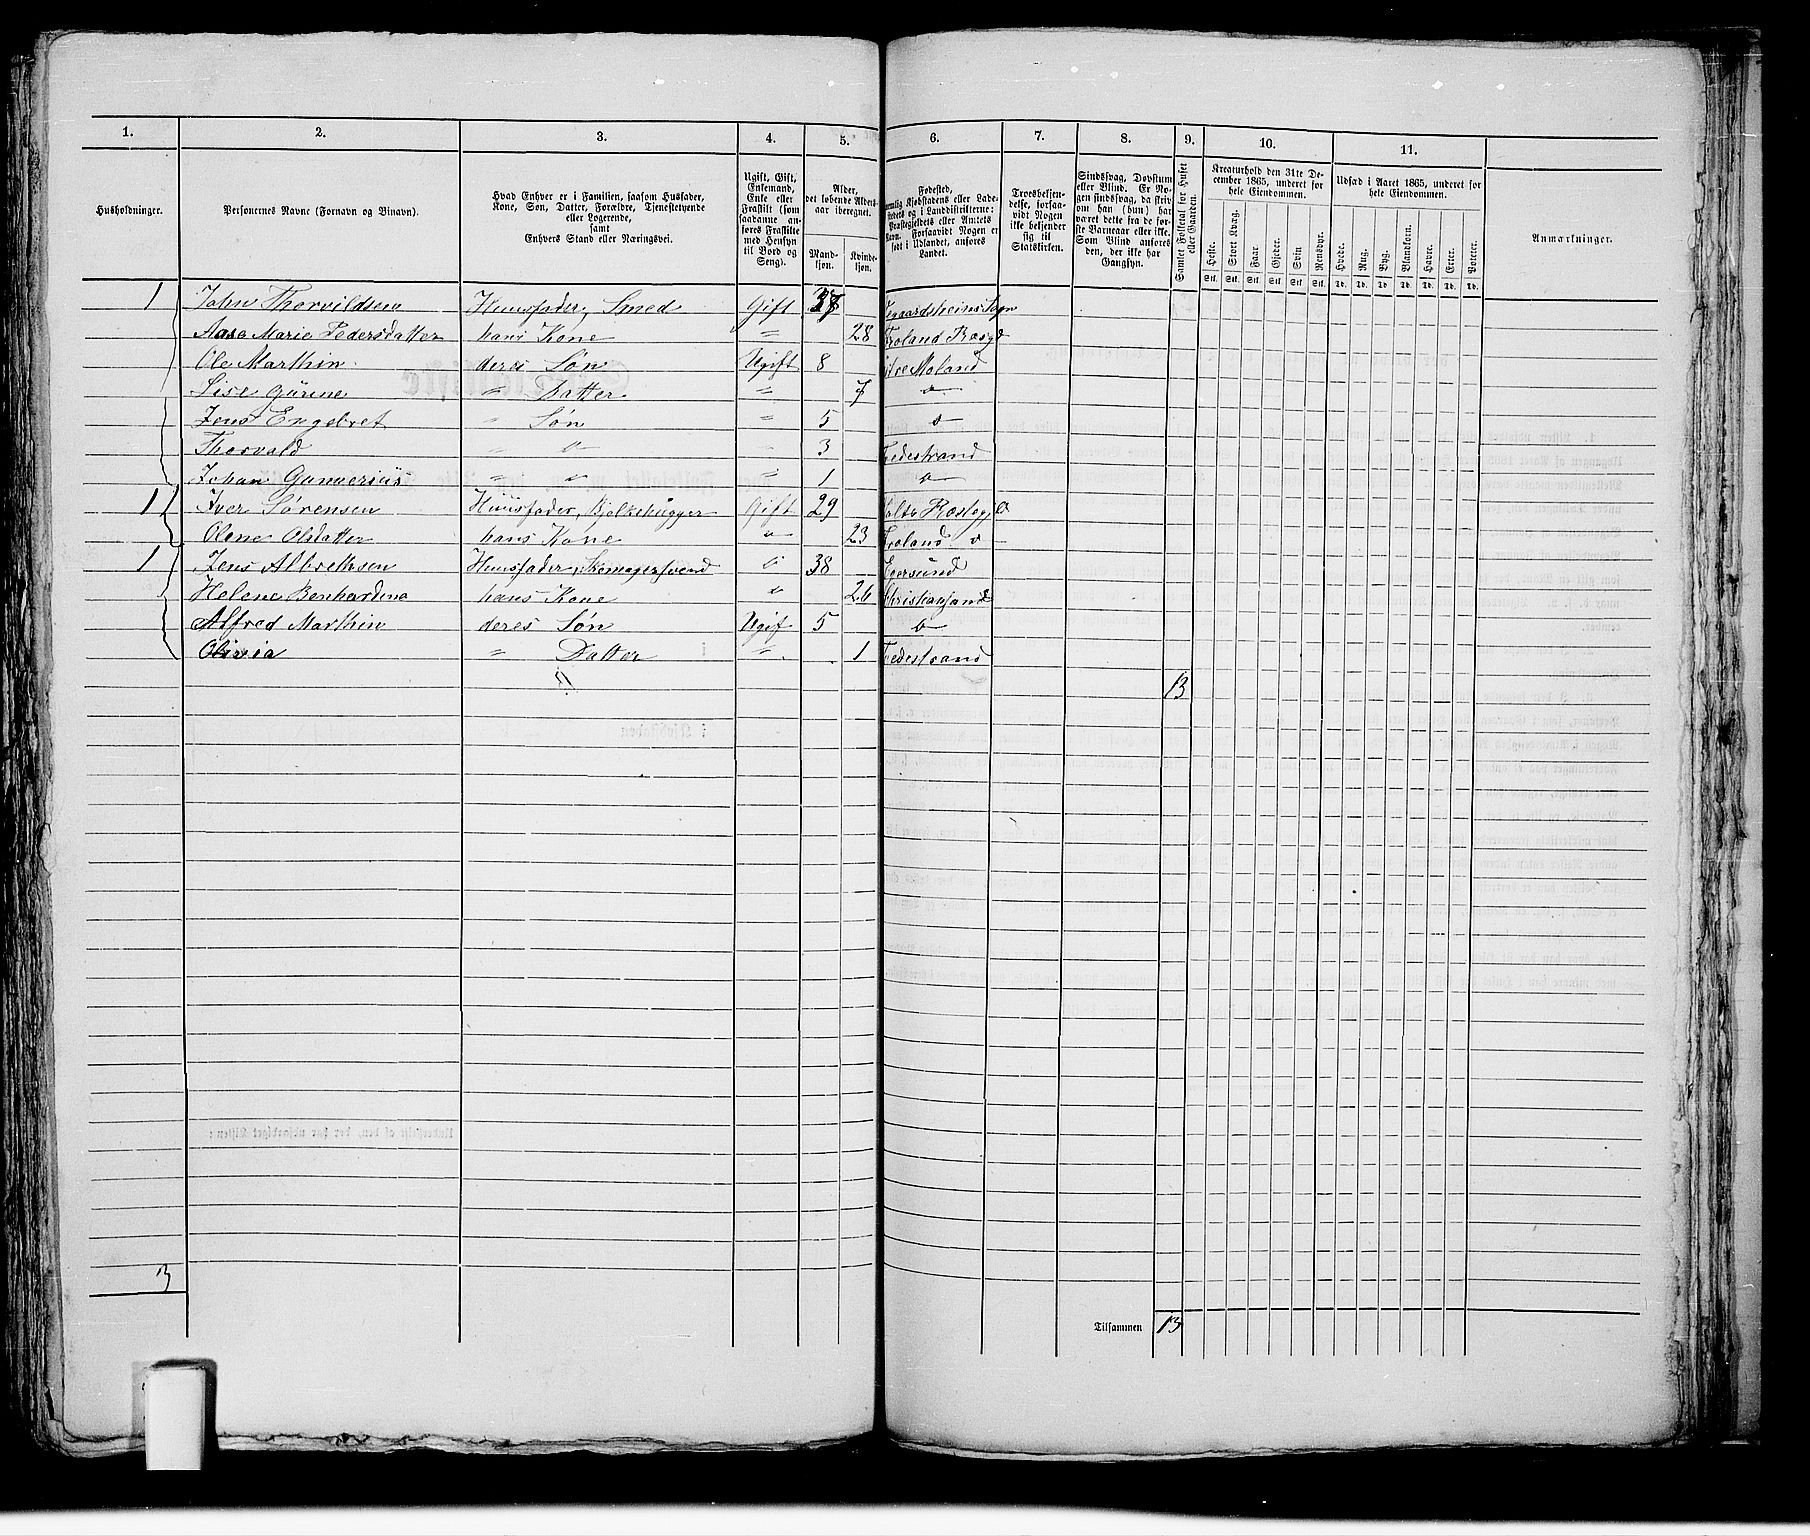 1. 2. 3. 4. 5. 6. 7. 8. 9. 10. 11.
Husholdninger.
Personernes Navne (Fornavn og Binavn).
Hvad Enhver er i Familien, saasom Husfader,
Kone, Søn, Datter, Forældre, Tjenestetyende
eller Logerende,
samt
Enhvers Stand eller Næringsvei.
Ugift, Gift,
Enkemand,
Enke eller
Fraskilt (som
saadanne an-
føres Fraskilte
med Hensyn
til Bord og
Seng).
Alder,
det løbende Alders-
aar iberegnet.
Mand-
kjøn.
Kvinde-
kjøn.
Fødested,
nemlig Kjøbstadens eller Lade-
stedets og i Landdistrikterne:
Præstegjeldets eller Amtets
Navn. Forsaavidt Nogen er
født i Udlandet, anføres
Landet.
Troesbekjen-
delse, forsaa-
vidt Nogen
ikke bekjender
sig til
Statskirken.
Sindssvag, Døvstum
eller Blind. Er No-
gen sindssvag, da skriv
om han (hun) har
været dette fra de før-
ste Barneaar eller ikke.
Som Blind anføres
den, der ikke har
Gangsyn.
Samlet Folketal for Huset
eller Gaarden.
Kreaturhold den 31te De-
cember 1865, underet for
hele Eiendommen.
Heste. Stort Kvæg. Faar. Gjeder. Svin Rensdyr.
Stk. Stk. Stk. Stk. Stk. Stk.
Udsæd i Aaret 1865, underet for
hele Eiendommen.
Hvede. Rug. Byg. Blandkorn. Havre. Erter. Poteter.
Td. Td. Td. Td. Td. Td. Td.
Anmærkninger.
1 John Thorvildsen Huusfader, Smed Gift 37 Gjaardsheims Sogn
Aase Marie Pedersdatter hans Kone " 28 Froland Præsgd
Ole Marthin deres Søn Ugift 8 Østre Moland
Lise Gurine " Datter " 7 "
Jens Engebret " Søn " 5 "
Thorvald " " " 3 Tvedestrand
Johan Gunnerius " " " 1 "
1 Iver Sørensen Huusfader, Bjelkehugger Gift 29 Holts Præstegjeld
Olene Olsdatter hans Kone " 23 Froland "
1 Jens Albretsen Huusfader, Skomagersvend " 38 Egersund
Helene Bernhardine hans Kone " 26 Christiansand
Alfred Marthin deres Søn Ugift 5 "
Olivia " Datter " 1 Tvedestrand
13
3
Tilsammen 13